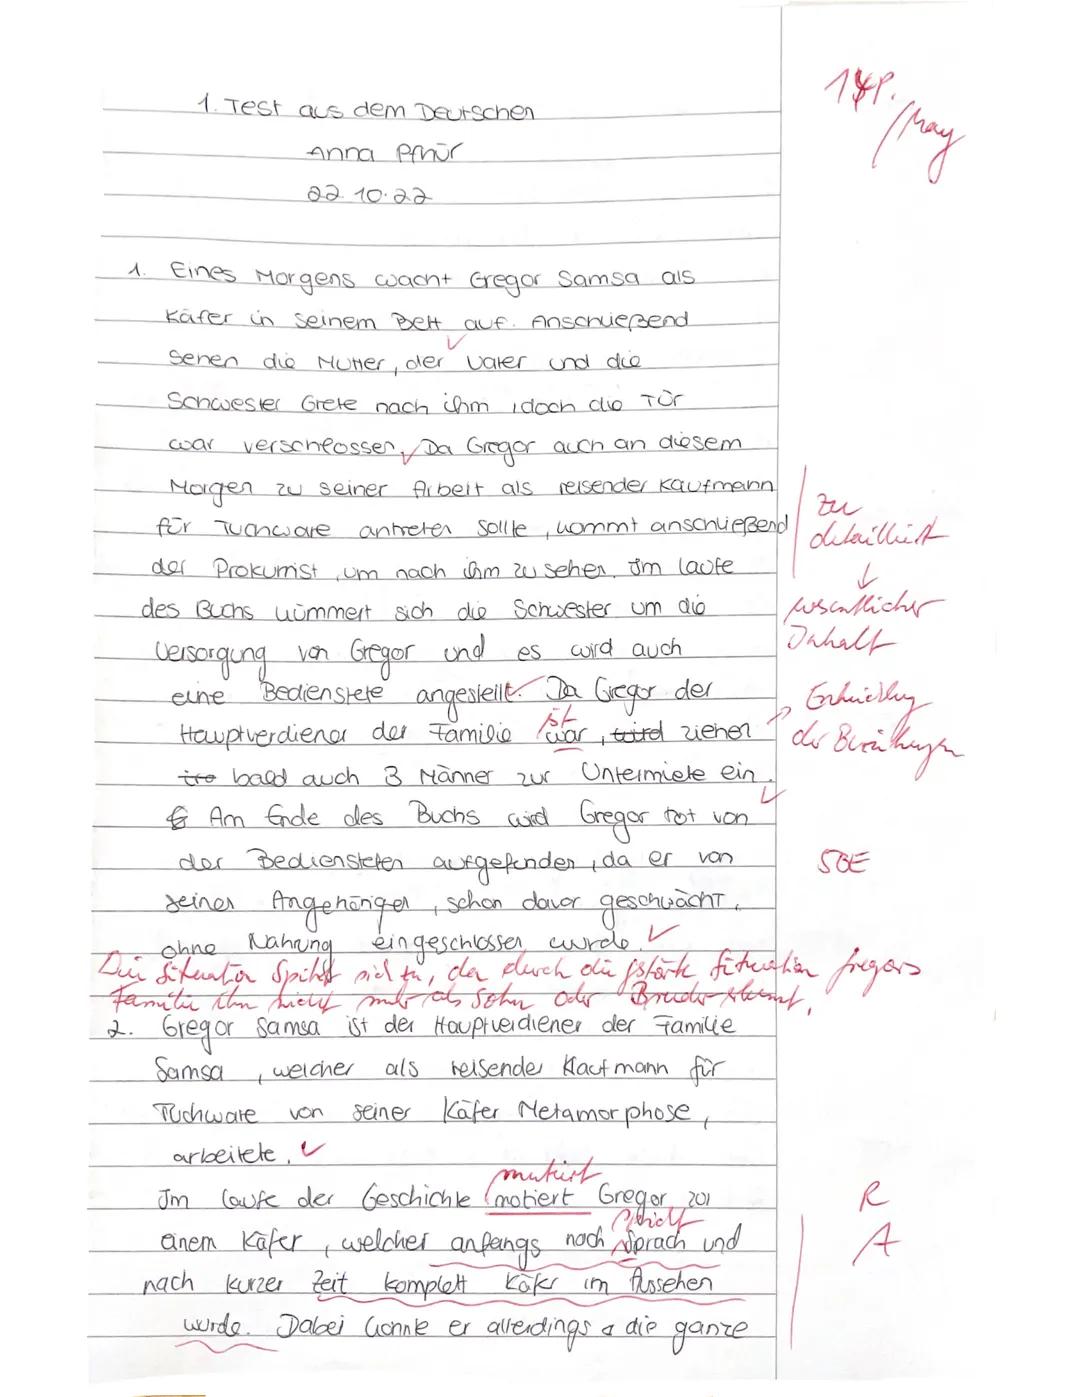 1. Test aus dem Deutschen
/May
Anna
22.10.22
1. Eines Morgens wacht Gregor Samsa als
Käfer in seinem Bett auf. Anschließend
sehen die Mutter, der Vater und die
Schwester Grete nach ihm, doch die Tür
war verschlossen. Da Gregor auch an diesem
Morgen zu seiner Arbeit als reisender Kaufmann
zu
für Tuchware antreten sollte, kommt anschließend
detailliert
der Prokurist, um nach ihm zu sehen. Im laufe
des Buchs kümmert sich die Schwester um die
wesentlicher
Inhalt
Versorgung von Gregor und es wird auch
eine Bedienstete angestellt. Da Gregor der
Entwicklung
ist
Hauptverdiener der Familie war, wird ziehen
der Beziehungen
bald auch 3 Männer zur Untermiete ein.
Am Ende des Buchs wird Gregor tot von
der Bediensteten aufgefunden, da er von
SBE
seinen Angehörigen, schon davor geschwächt,
ohne Nahrung eingeschlossen wurde.
Die Situation spitzt sich zu, da durch die Situation Gregors
Familie ihn nicht mehr als Sohn oder Bruder
2. Gregor Samsa ist der Hauptverdiener der Familie
Samsa, welcher als reisender Kaufmann für
Tuchware von seiner Käfer Metamorphose,
arbeitete.
mutiert
Im laufe der Geschichte motiert Gregor zu
R
einem Käfer, welcher anfangs noch sprach und
A
nach kurzer Zeit komplett Käfer im Aussehen
wurde. Dabei konnte er allerdings die ganze